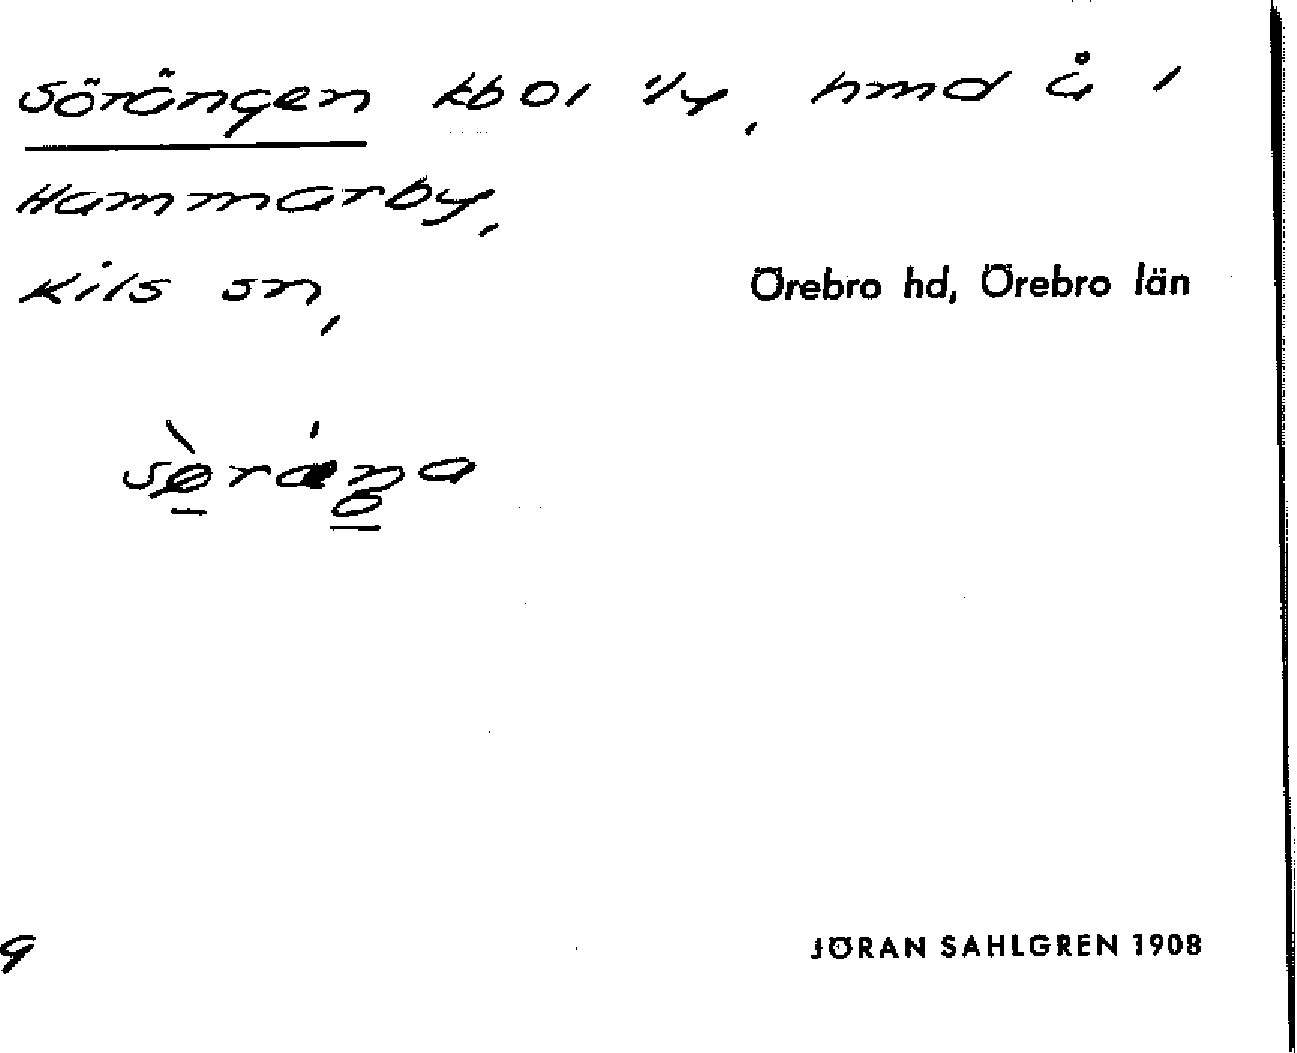 Sörängen kbol 1/4, hmd å 1
Hammarby,
Kils sn,
Örebro hd, Örebro län
9
JÖRAN SAHLGREN 1908